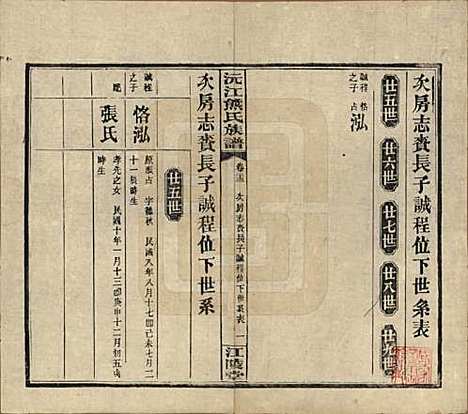 次房志賚長子誠程位下世系表
廿五世
廿六世
廿七世
廿八世
廿九世
誠程
之子
恪泓
沅江熊氏族譜
卷十五
次房志賚長子誠程位下世系表
一
江陵堂
次房志賚長子誠程位下世系
廿五世
誠程
之子
恪泓
字聽秋
民國八年八月十七即己未七月二
十一寅時生
配
張氏
孝先之女
民國十年一月十三即庚申十二月初五戌
時生